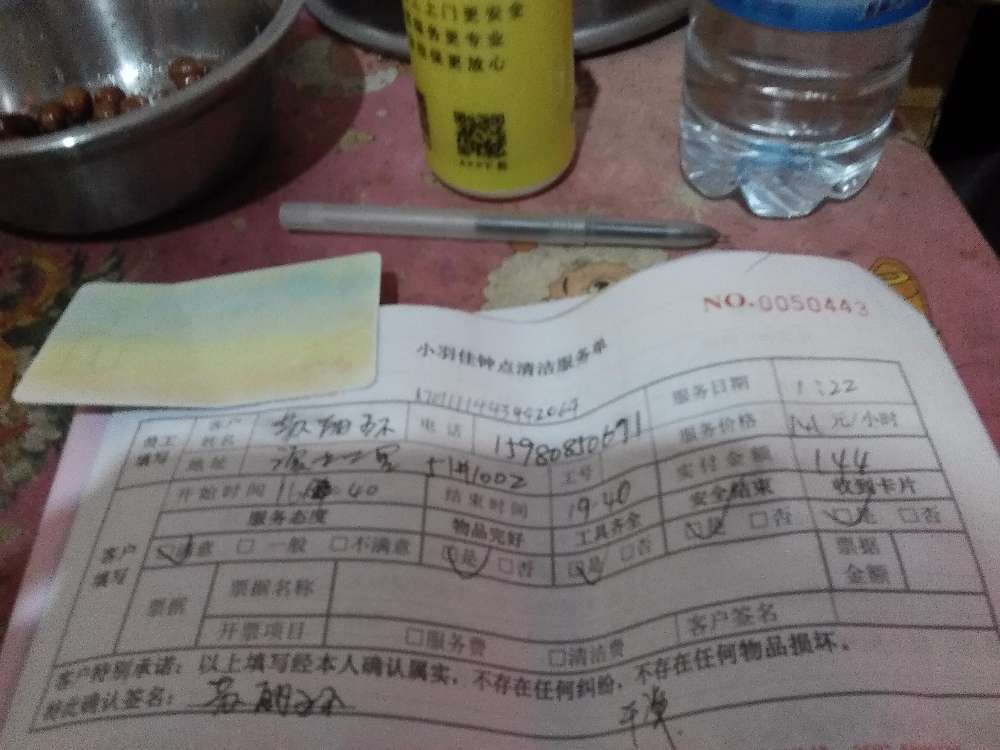 上门更安全
服务更专业
更放心
NO.0050443
小羽佳钟点清洁服务单
员工填写 客户姓名 电话 15980850691 服务日期 1:22
地址 1002 工号 服务价格 元/小时
开始时间 40 结束时间 19:40 实付金额 144
客户填写 服务态度 物品完好 工具齐全 安全结束 收到卡片
满意 □ 一般 □不满意 是 □否 是 □否 是 □否 是 □否
票据 票据名称 票据金额
开票项目 □服务费 □清洁费 客户签名
客户特别承诺：以上填写经本人确认属实，不存在任何纠纷，不存在任何物品损坏。
特此确认签名：